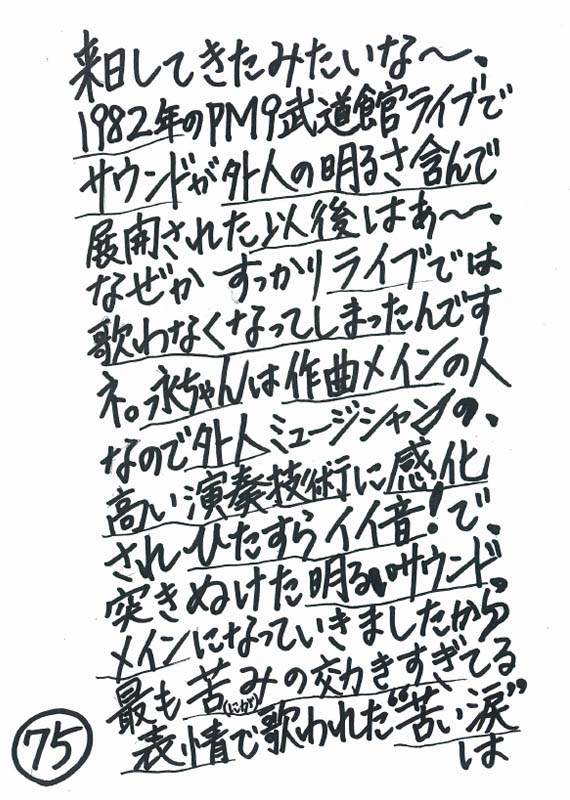 来日してきたみたいな〜、
1982年のPM9武道館ライブで
サウンドが外人の明るさ含んで
展開された以後はあ〜、
なぜか すっかりライブでは
歌わなくなってしまったんです
ネ。永ちゃんは作曲メインの人
なので外人ミュージシャンの、
高い演奏技術に感化
されひたすらイイ音!で、
突きぬけた明るいサウンド。
メインになっていきましたから
最も苦み(にが)の効きすぎてる
表情で歌われた“苦い涙”
は
75